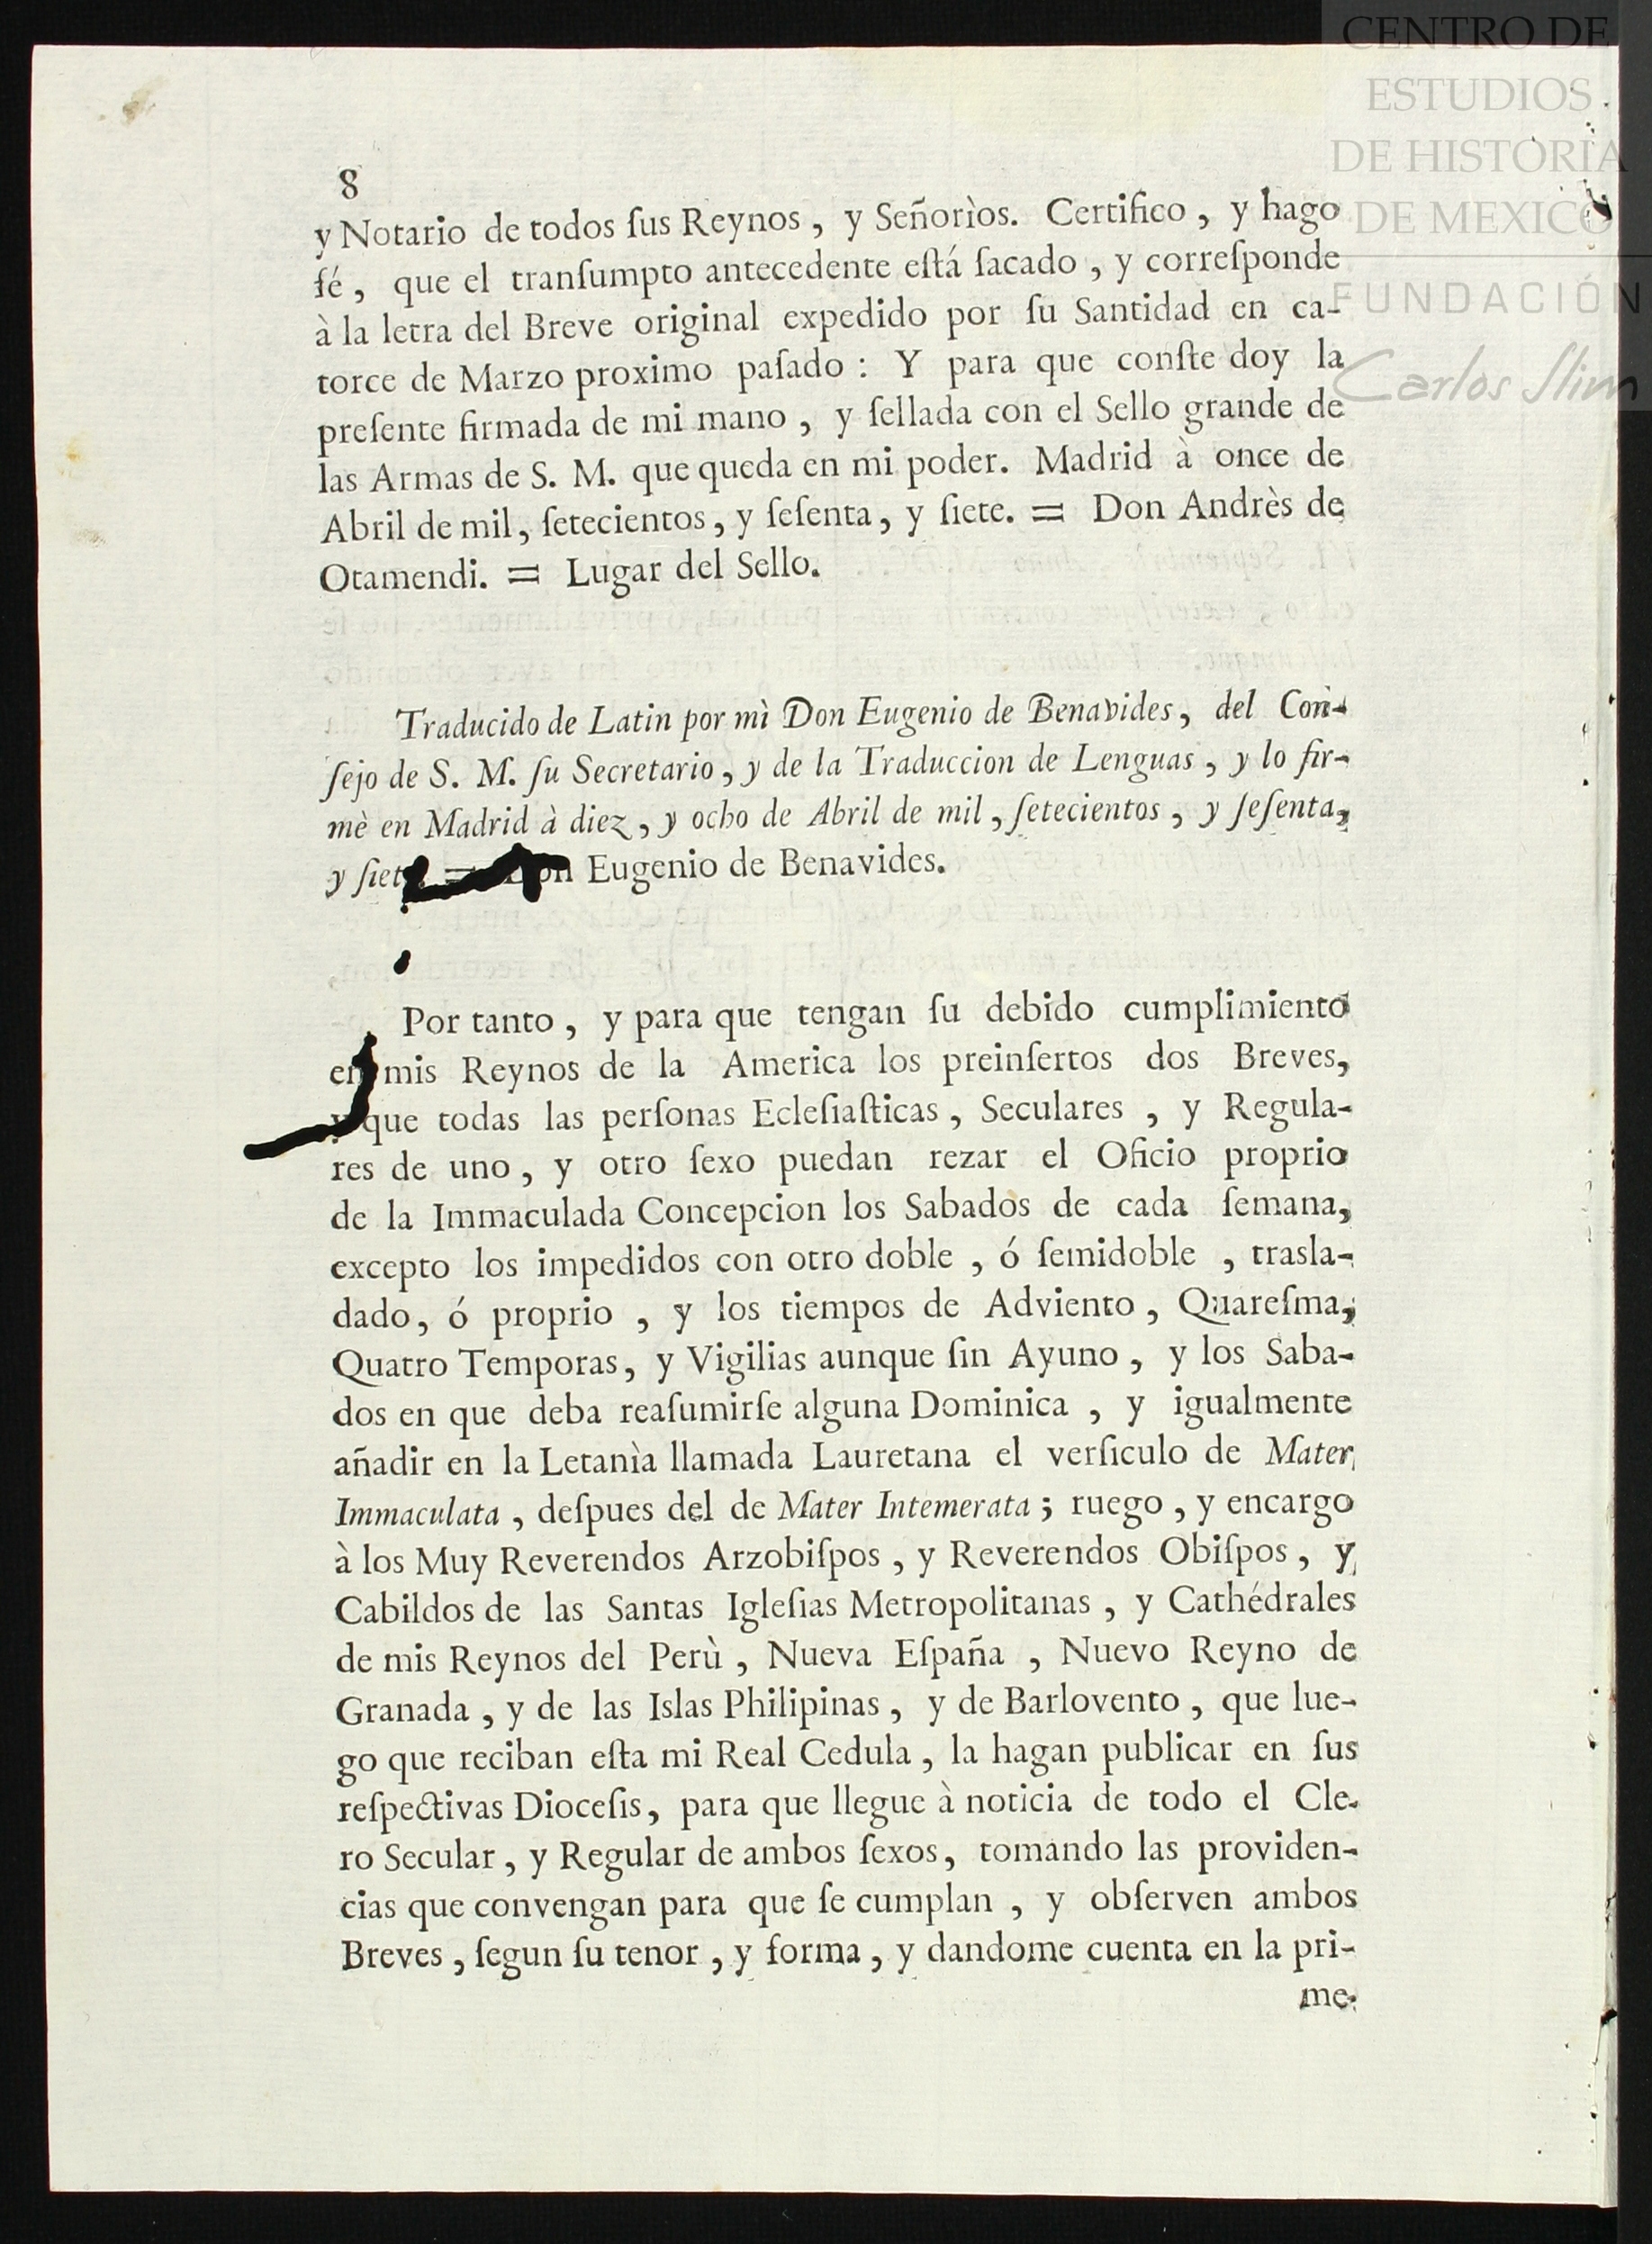 CENTRO DE
ESTUDIOS
DE HISTORIA
DE MEXICO
FUNDACIÓN
Carlos Slim
8
y Notario de todos ſus Reynos, y Señorìos. Certifico, y hago
fé, que el tranſumpto antecedente eſtá ſacado, y correſponde
à la letra del Breve original expedido por ſu Santidad en ca-
torce de Marzo proximo paſado: Y para que conſte doy la
preſente firmada de mi mano, y ſellada con el Sello grande de
las Armas de S. M. que queda en mi poder. Madrid à once de
Abril de mil, ſetecientos, y ſeſenta, y ſiete. = Don Andrès de
Otamendi. = Lugar del Sello.
Traducido de Latin por mì Don Eugenio de Benavides, del Con-
ſejo de S. M. ſu Secretario, y de la Traduccion de Lenguas, y lo fir-
mè en Madrid à diez, y ocho de Abril de mil, ſetecientos, y ſeſenta,
y ſiete. = Don Eugenio de Benavides.
Por tanto, y para que tengan ſu debido cumplimiento
en mis Reynos de la America los preinſertos dos Breves,
y que todas las perſonas Ecleſiaſticas, Seculares, y Regula-
res de uno, y otro ſexo puedan rezar el Oficio proprio
de la Immaculada Concepcion los Sabados de cada ſemana,
excepto los impedidos con otro doble, ó ſemidoble, trasla-
dado, ó proprio, y los tiempos de Adviento, Quareſma,
Quatro Temporas, y Vigilias aunque ſin Ayuno, y los Saba-
dos en que deba reaſumirſe alguna Dominica, y igualmente
añadir en la Letanìa llamada Lauretana el verſiculo de Mater
Immaculata, deſpues del de Mater Intemerata; ruego, y encargo
à los Muy Reverendos Arzobiſpos, y Reverendos Obiſpos, y
Cabildos de las Santas Igleſias Metropolitanas, y Cathédrales
de mis Reynos del Perù, Nueva Eſpaña, Nuevo Reyno de
Granada, y de las Islas Philipinas, y de Barlovento, que lue-
go que reciban eſta mi Real Cedula, la hagan publicar en ſus
reſpectivas Dioceſis, para que llegue à noticia de todo el Cle-
ro Secular, y Regular de ambos ſexos, tomando las providen-
cias que convengan para que ſe cumplan, y obſerven ambos
Breves, ſegun ſu tenor, y forma, y dandome cuenta en la pri-
me-